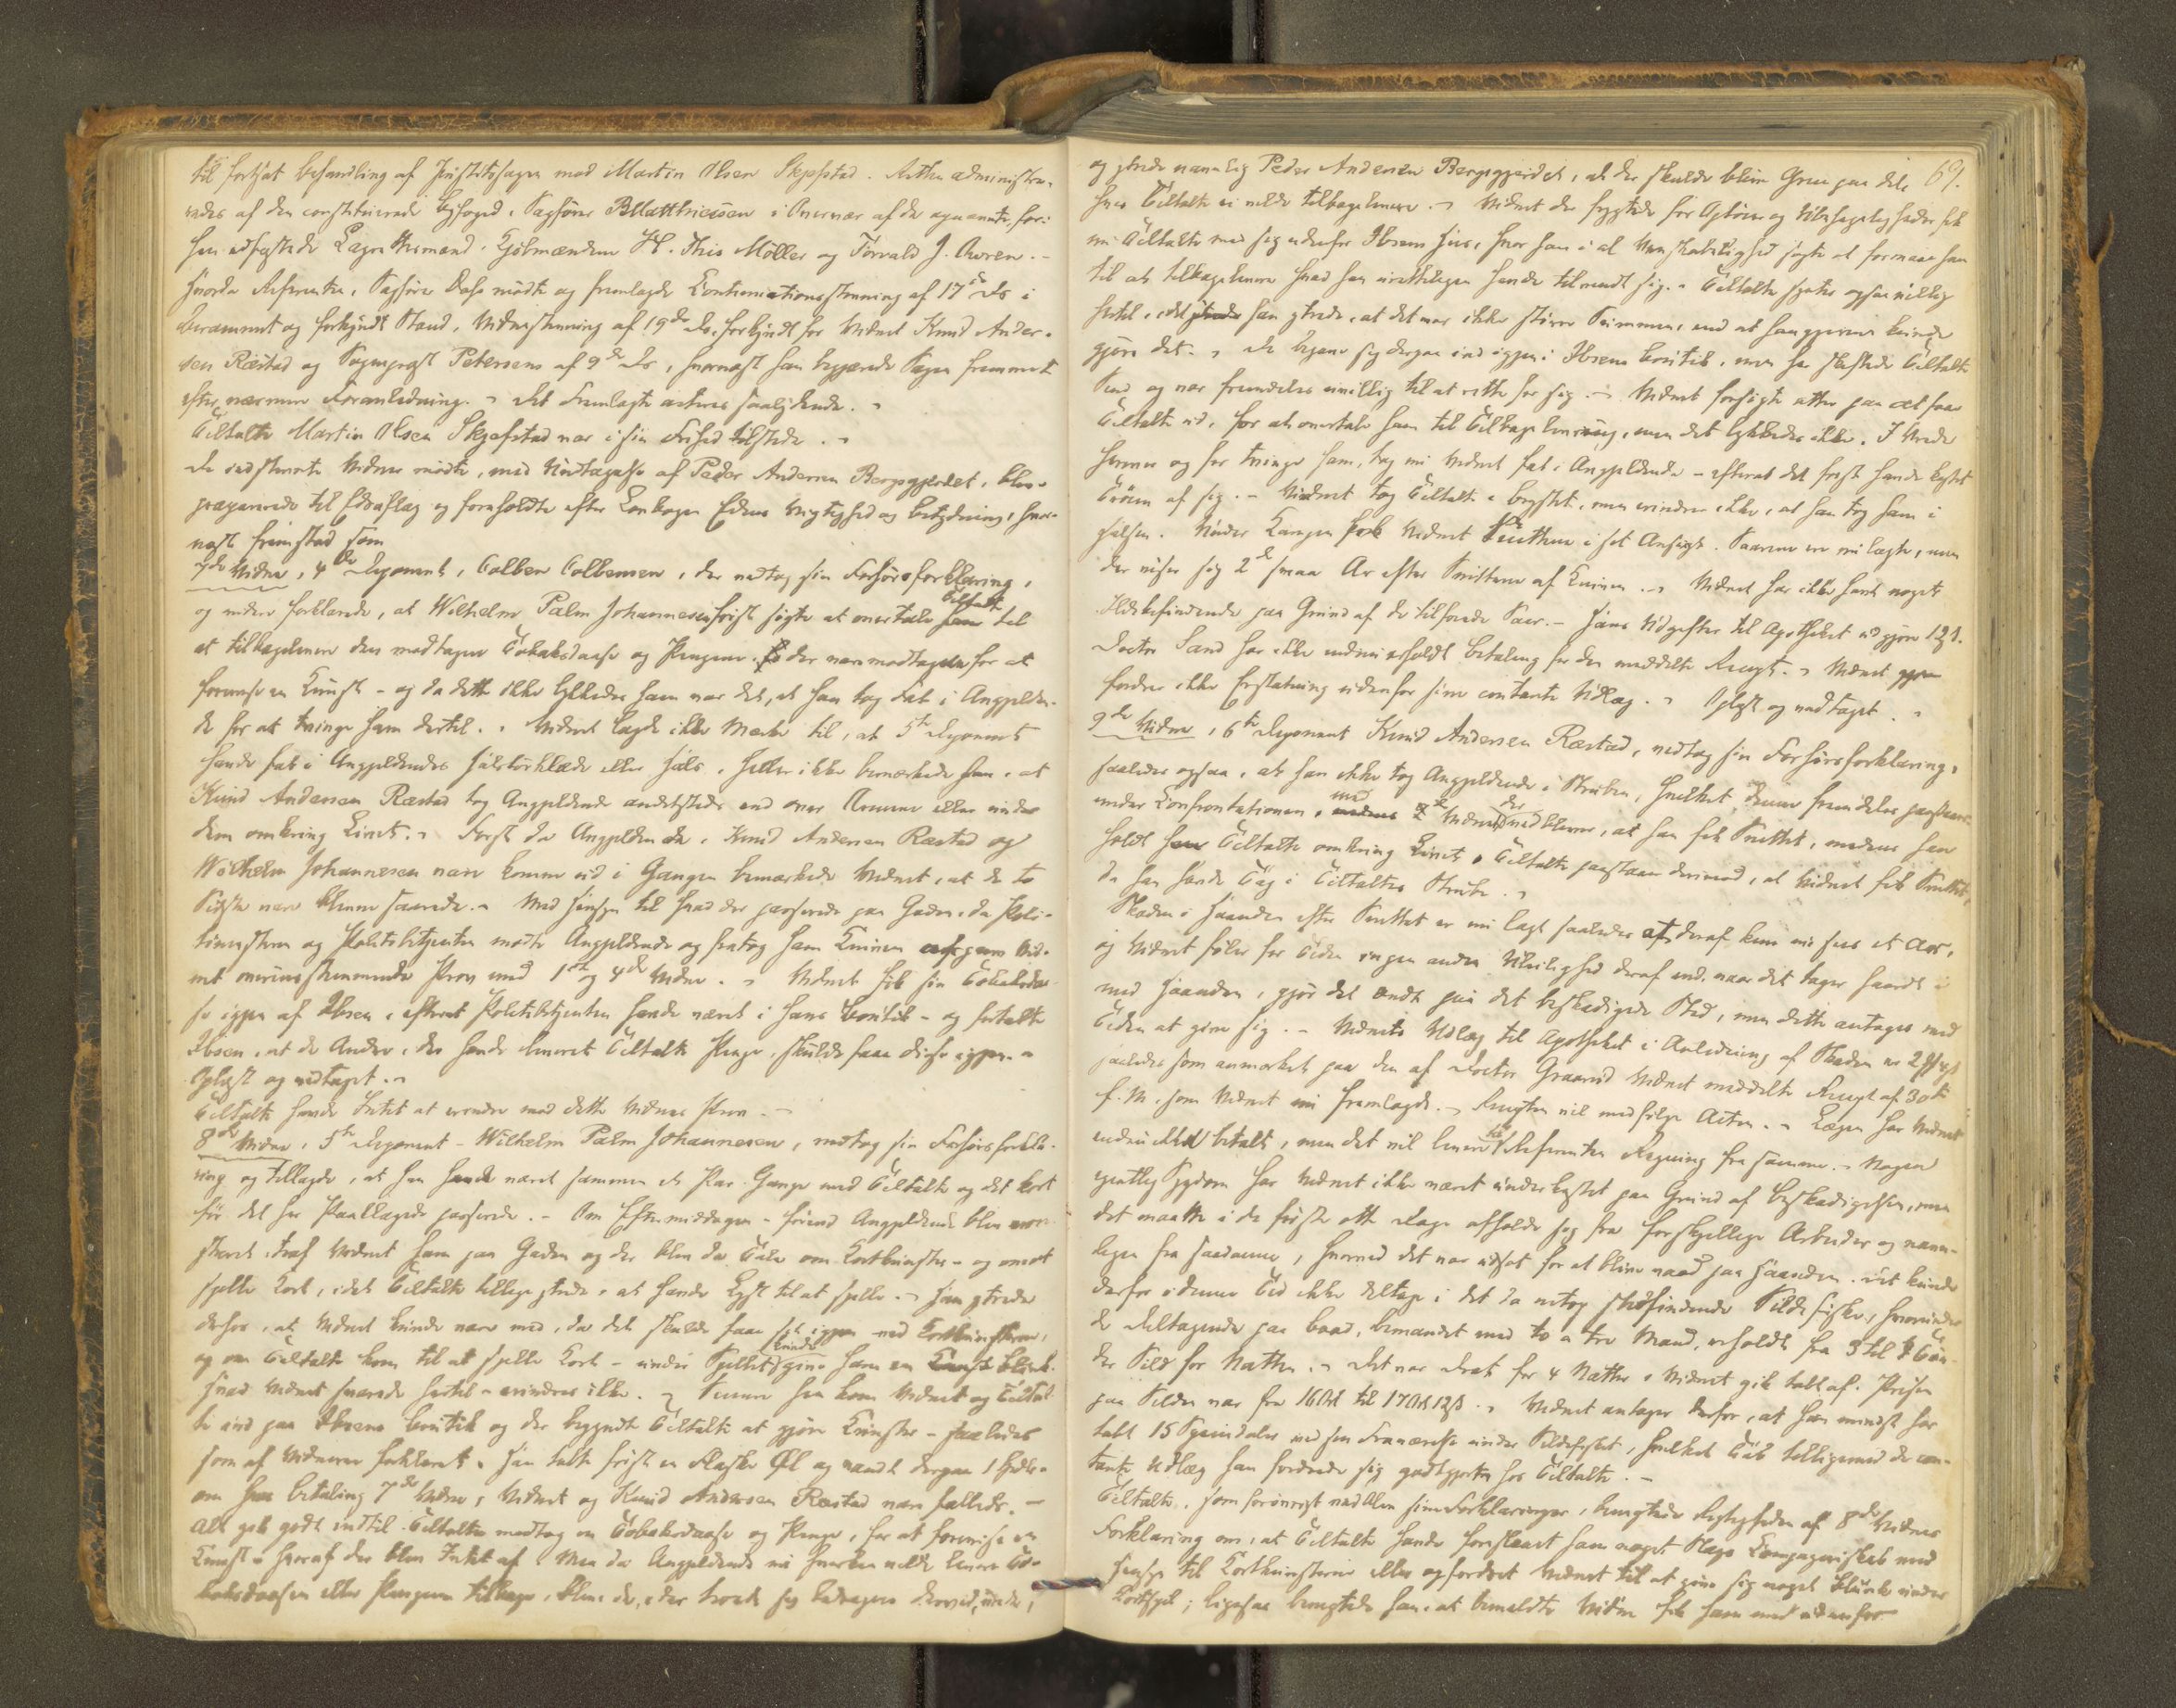 til fortsat Behandling af Justitssagen mod Martin Olsen Skjefstad. Retten administre-
redes af den constituerede Byfoged, Sagfører B. Matthiessen i Overvær af de opnævnte, for-
hen edfæstede Lagrettesmænd, Kjøbmændene H. This Møller og Torvald J. Owren. -
hvorda Referenten, Sagfører Dahs mødte og fremlagde Continuationsstævning af 17de ds i
berammet og forkyndt Stand, Vidnestævning af 19de ds. forkyndt for Vidnet Knud Ander-
sen Ræstad og Sogneprest Petersens af 9de ds, hvornæst han begjærede Sagen fremmet
efter nærmere Foranledning. - Det Fremlagte acteres saalydende. -
Tiltalte Martin Olsen Skjefstad var i sin Frihed tilstede. -
De indstevnte Vidner mødte, med Undtagelse af Peder Andersen Bergsgjerdet, blev
præparerede til Edsaflæg og foreholdte efter Lovbogen Edens Vigtighed og Betydning, hvor-
næst fremstod som
7de Vidne, 4de Deponent, Colben Colbensen, der vedtog sin Forhørsforklaring,
og videre forklarede, at Wilhelm Palm Johannesen først søgte at overtale Tiltalte til
at tilbagelevere den modtagne Tobaksdaase og Pengene, der vare modtagne for at
forevise en Kunst - og da dette ikke lykkedes ham var det, at han tog Fat i Angjelden-
de for at tvinge ham dertil. - Vidnet lagde ikke Mærke til, at 5te Deponent
havde fat i Angjeldendes Halstørklæde eller Hals, heller ikke bemærkede han, at
Knud Andersen Ræstad tog Angjeldende andetsteds end over Armene eller under
dem omkring Livet. - Først da Angjeldende, Knud Andersen Ræstad og
Wilhelm Johannesen vare komne ud i Gangen bemærkede Vidnet, at de to
Sidste vare blevne saarede. - Med Hensyn til hvad der passerede paa Gaden, da Poli-
timesteren og Politibetjenten mødte Angjeldende og fratog ham Kniven afgav Vid-
net overensstemmende Prov med 1ste og 4de Vidne. - Vidnet fik sin Tobaksdaa-
se igjen af Ibsen, efterat Politibetjenten havde været i hans Boutik - og fortalte
Ibsen, at de Andre, der havde leveret Tiltalte Penge, skulde faae disse igjen. -
Oplæst og vedtaget. -
Tiltalte havde Intet at erindre mod dette Vidnes Prov. -
8de Vidne, 5te Deponent - Wilhelm Palm Johannesen, vedtog sin Forhørsforkla-
ring og tillagde, at han havde været sammen et Par Gange med Tiltalte og det kort
før det her Paaklagede passerede. - Om Eftermiddagen - førend Angjeldende blev arre-
steret, traf Vidnet ham paa Gaden og der blev da Tale om Kortkunster - og om at
spille Kort, idet Tiltalte tillige ytrede, at have Lyst til at spille. - Han ytrede
derhos, at Vidnet kunde være med, da det skulde faae sit igjen ved Kortkunsterne,
og om Tiltalte kom til at spille Kort - under Spillet kunde give ham en Blink.
Hvad Vidnet svarede hertil - erindres ikke. - Senere hen kom Vidnet og Tiltal-
te ind paa Ibsens Boutik og der begyndte Tiltalte at gjøre Kunster - saaledes
som af Vidnerne forklaret. Han tabte først en Flaske Øl og vandt derpaa 1
om hvis Betaling 7de Vidne, Vidnet og Knud Andersen Ræstad vare fælleds. -
Alt gik godt indtil Tiltalte modtog en Tobaksdaase og Penge, for at forevise en
Kunst - hvoraf der blev Intet af. Men da Angjeldende nu hverken vilde levere To-
baksdaasen eller Pengene tilbage, blev de, der troede sig bedragne derved, vrede,
69.
og ytrede navnlig Peder Andersen Bergsgjerdet, at der skulde blive Gru paa det,
hvis Tiltalte ei vilde tilbagelevere. - Vidnet der frygtede for Optøier og Ubehageligheder fik
nu Tiltalte med sig udenfor Ibsens Huus, hvor han i al Venskabelighed søgte at formaae ham
til at tilbagelevere hvad han uretteligen havde tilvendt sig. - Tiltalte syntes ogsaa villig
hertil, idet han ytrede, at det var ikke større Summen, end at han gjerne kunde
gjøre det. - De begave sig derpaa ind igjen i Ibsens Boutik, men her skiftede Tiltalte
Sind og var fremdeles uvillig til at rette for sig. - Vidnet forsøgte atter paa at faae
Tiltalte ud, for at overtale ham til Tilbagelevering, men det lykkedes ikke. I Vrede
herover og for tvinge ham, tog nu Vidnet fat i Angjeldende - efterat det først havde kastet
Trøien af sig. - Vidnet tog Tiltalte i Brystet, men erindrer ikke, at han tog ham i
Halsen. Under Kampen fik Vidnet Snittene i sit Ansigt. Saarene ere nu lægte, men
der viser sig 2de smaa Ar efter Snittene af Kniven. - Vidnet har ikke havt noget
Ildebefindende paa Grund af de tilføiede Saar. - Hans Udgifter til Apotheket udgjøre 12 ß.
Doctor Sand har ikke endnu erholdt Betaling for den meddelte Recept. - Vidnet
fordrer ikke Erstatning udenfor sine contante Udlæg. - Oplæst og vedtaget. -
9de Vidne, 6te Deponent Knud Andersen Ræstad, vedtog sin Forhørsforklaring,
saaledes ogsaa, at han ikke tog Angjeldende i Struben, hvilket Denne fremdeles paastaar
under Confrontationen, med Vidnet, der vedblev, at han fik Snittet, medens han
holdt Tiltalte omkring Livet. Tiltalte paastaar derimod, at Vidnet fik Snittet,
da han havde Tag i Tiltaltes Strube. -
Skaden i Haanden efter Snittet er nu lægt saaledes at deraf kun nu sees et Ar,
og Vidnet føler for Tiden ingen anden Uleilighed deraf end, naar det tager haardt i
med Haanden, gjør det ondt paa det beskadigede Sted, men dette antages med
Tiden at give sig. - Vidnets Udlæg til Apotheket i Anledning af Skaden er
saaledes som anmærket paa den af Doctor Graarud Vidnet meddelte Recept af 30te
f. M. som Vidnet fremlagde. - Recepten vil medfølge Acten. - Lægen har Vidnet
endnu ikke betalt, men det vil levere til Referenten Regning fra samme. - Nogen
egentlig Sygdom har Vidnet ikke været underkastet paa Grund af Beskadigelsen, men
det maatte i de første otte Dage afholde sig fra forskjellige Arbeider og navn-
ligen fra saadanne, hvorved det var udsat for at blive vaad paa Haanden. Det kunde
derfor i denne Tid ikke deltage i det da netop stedfindende Sildefiske, hvorunder
de Deltagende paa Baad, bemandet med to a tre Mand, erholdt fra 3 til Tøn-
der Sild for Natten. - Det var Dræt for 4 Nætter Vidnet gik tabt af. Prisen
paa Silden var fra 16 Ort til 17 Ort 12 ß. - Vidnet antager derfor, at han mindst har
tabt 15 Speciedaler ved sin Fraværelse under Sildefisket, hvilket Tab tilligemed de con-
tante Udlæg han fordrede sig godtgjort hos Tiltalte. -
Tiltalte, som forøvrigt vedblev sine Forklaringer, benegtede Rigtigheden af 8de Vidnes
Forklaring om, at Tiltalte havde foreslaaet ham noget Slags Compagniskab med
Hensyn til Kortkunsterne eller opfordret Vidnet til at give sig noget Blink under
Kortspil; ligesaa benegtede han, at bemeldte Vidne fik ham med udenfor